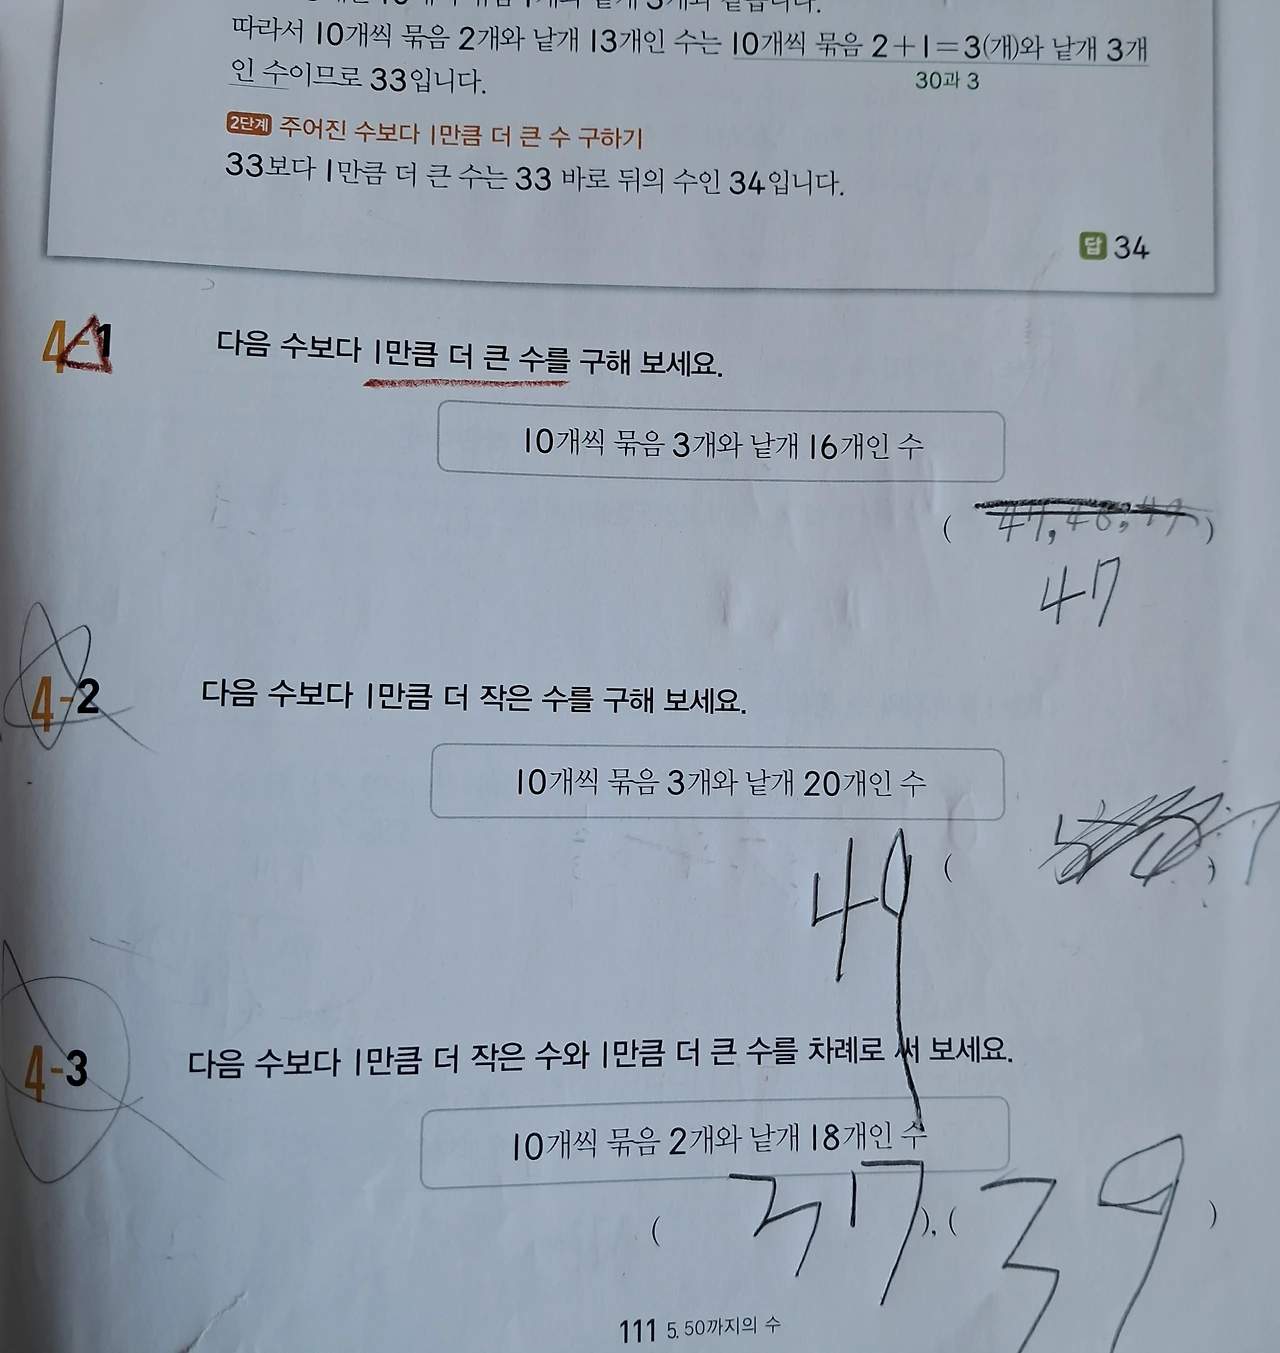 따라서 10개씩 묶음 2개와 낱개 13개인 수는 10개씩 묶음 2+1=3(개)와 낱개 3개
인 수이므로 33입니다.
30과 3
2단계 주어진 수보다 1만큼 더 큰 수 구하기
33보다 1만큼 더 큰 수는 33 바로 뒤의 수인 34입니다.
답 34
4-1 다음 수보다 1만큼 더 큰 수를 구해 보세요.
10개씩 묶음 3개와 낱개 16개인 수
( 47, 48, 49 )
47
4-2 다음 수보다 1만큼 더 작은 수를 구해 보세요.
10개씩 묶음 3개와 낱개 20개인 수
49 ( )
4-3 다음 수보다 1만큼 더 작은 수와 1만큼 더 큰 수를 차례로 써 보세요.
10개씩 묶음 2개와 낱개 18개인 수
( 37 ), ( 39 )
111 5. 50까지의 수